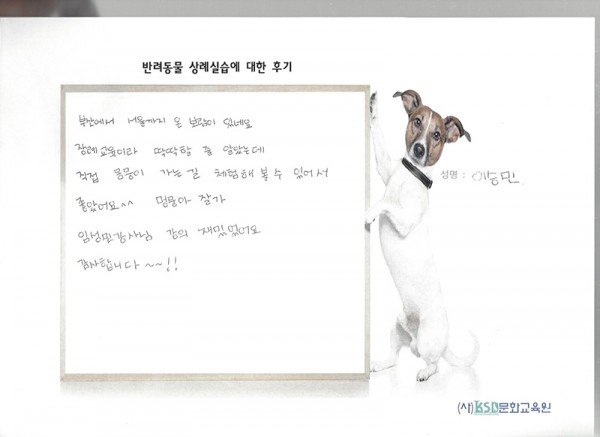 반려동물 상례실습에 대한 후기
부산에서 서울까지 온 보람이 있네요
장례교육이라 딱딱할 줄 알았는데
직접 몽몽이 가는길 체험해 볼 수 있어서
좋았어요^^ 멍뭉아 잘가
임성민강사님 강의 재밌었어요
감사합니다 ~~!!
성명 : 이승민
(사)KSD문화교육원